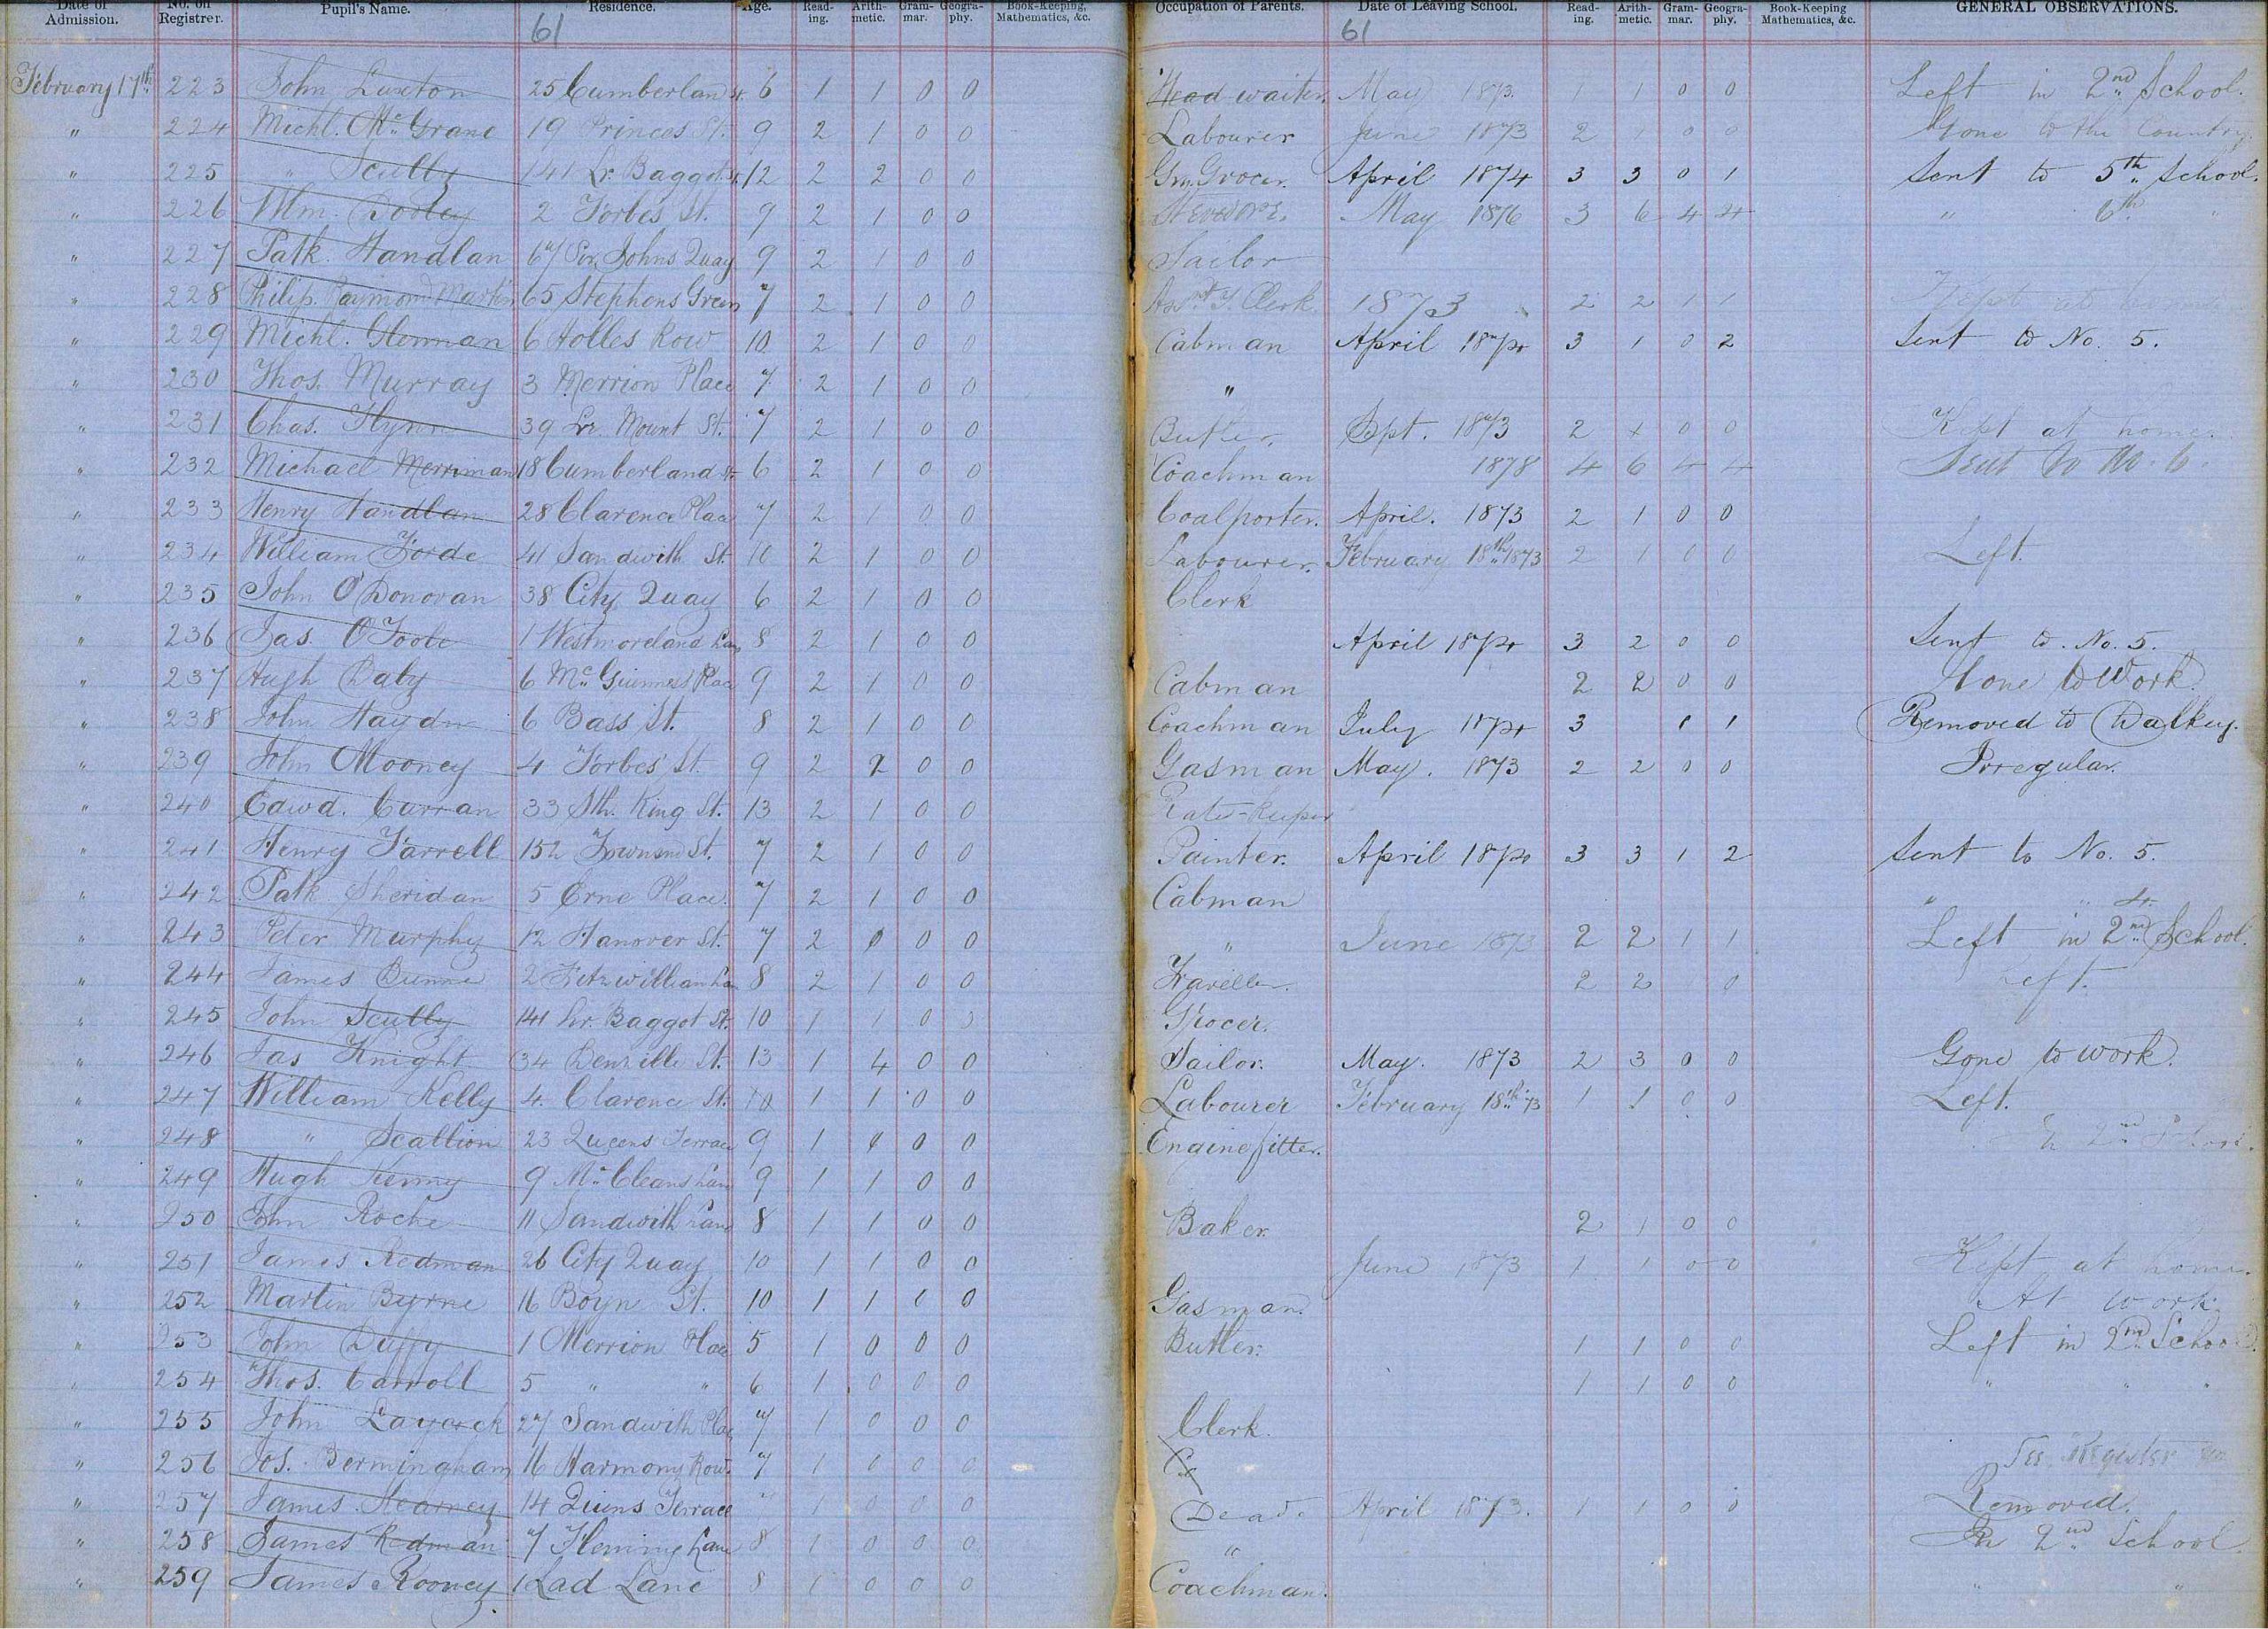 Date of Admission. No. on Registrer. Pupil's Name. Residence. Age. Reading. Arithmetic. Grammar. Geography. Book-Keeping, Mathematics, &c. Occupation of Parents. Date of Leaving School. Reading. Arithmetic. Grammar. Geography. Book-Keeping Mathematics, &c. GENERAL OBSERVATIONS.
61 61
February 17th 223 John Luxton 25 Cumberland St. 6 1 1 0 0 Head waiter. May 1873. 1 1 0 0 Left in 2nd School.
" 224 Michl. Mc Grane 19 Princes St. 9 2 1 0 0 Labourer June 1873 2 1 0 0 Gone to the Country.
" 225 " Scully 141 Lr. Baggot St. 12 2 2 0 0 Grn. Grocer. April 1874 3 3 0 1 Sent to 5th School.
" 226 Wm. Dooley 2 Forbes St. 9 2 1 0 0 May 1876 3 6 4 4 " 6th "
" 227 Patk. Handlan 67 Sir Johns Quay 9 2 1 0 0 Sailor
" 228 Philip Raymond Martin 65 Stephens Green 7 2 1 0 0 Clerk 1873 2 2 1 1 Kept at home
" 229 Michl. Glennan 6 Holles Row 10 2 1 0 0 Cabman April 1874 3 1 0 2 Sent to No. 5.
" 230 Thos. Murray 3 Merrion Place 7 2 1 0 0 "
" 231 Chas. Flynn 39 Lr. Mount St. 7 2 1 0 0 Butler, Sept. 1873 2 + 0 0 Kept at home.
" 232 Michael Merriman 18 Cumberland St. 6 2 1 0 0 Coachman 1878 4 6 4 4 Sent to No. 6.
" 233 Henry Handlan 28 Clarence Place 7 2 1 0 0 Coalporter. April. 1873 2 1 0 0
" 234 William Forde 41 Sandwith St. 10 2 1 0 0 Labourer. February 18th 1873 2 1 0 0 Left.
" 235 John O'Donovan 38 City Quay 6 2 1 0 0 Clerk
" 236 Jas. O'Toole 1 Westmoreland Lane 8 2 1 0 0 April 1874 3 2 0 0 Sent to No. 5.
" 237 Hugh Daly 6 Mc Guinness Place 9 2 1 0 0 Cabman 2 2 0 0 Gone to Work.
" 238 John Haydn 6 Bass St. 8 2 1 0 0 Coachman July 1874 3 1 1 Removed to Dalkey.
" 239 John Mooney 4 Forbes St. 9 2 2 0 0 Gasman May. 1873 2 2 0 0 Irregular.
" 240 Edwd. Curran 33 Sth. King St. 13 2 1 0 0 Gate-keeper
" 241 Henry Farrell 152 Townsend St. 7 2 1 0 0 Painter. April 1874 3 3 1 2 Sent to No. 5.
" 242 Patk Sheridan 5 Erne Place. 7 2 1 0 0 Cabman " " 4.
" 243 Peter Murphy 12 Hanover St. 7 2 0 0 0 " June 1873 2 2 1 1 Left in 2nd School.
" 244 James Dunne 2 Fitzwilliam Lane 8 2 1 0 0 Traveller. 2 2 0 Left.
" 245 John Scully 141 Lr. Baggot St. 10 1 1 0 3 Grocer.
" 246 Jas Knight 34 Denzille St. 13 1 4 0 0 Sailor. May. 1873 2 3 0 0 Gone to work.
" 247 William Kelly 4 Clarence St. 10 1 1 0 0 Labourer February 18th 73 1 1 0 0 Left.
" 248 " Scallion 23 Queens Terrace 9 1 1 0 0 Enginefitter. In 2nd School.
" 249 Hugh Kenny 9 Mc Cleans Lane 9 1 1 0 0
" 250 John Roche 11 Sandwith Lane 8 1 1 0 0 Baker. 2 1 0 0
" 251 James Redman 26 City Quay 10 1 1 0 0 June 1873 1 1 0 0 Kept at home.
" 252 Martin Byrne 16 Boyne St. 10 1 1 0 0 Gasman. At work.
" 253 John Duffy 1 Merrion Place 5 1 0 0 0 Butler. 1 1 0 0 Left in 2nd School.
" 254 Thos. Carroll 5 " " 6 1 0 0 0 1 1 0 0 " " "
" 255 John Laycock 27 Sandwith Place 7 1 0 0 0 Clerk.
" 256 Jos. Bermingham 16 Harmony Row. 7 1 0 0 0 See Register
" 257 James Kearney 14 Quens Terrace 7 1 0 0 0 Dead. April 1873. 1 1 0 0 Removed.
" 258 James Redman 7 Fleming Lane 8 1 0 0 0 " In 2nd School.
" 259 James Rooney 1 Lad Lane 8 1 0 0 0 Coachman. " "